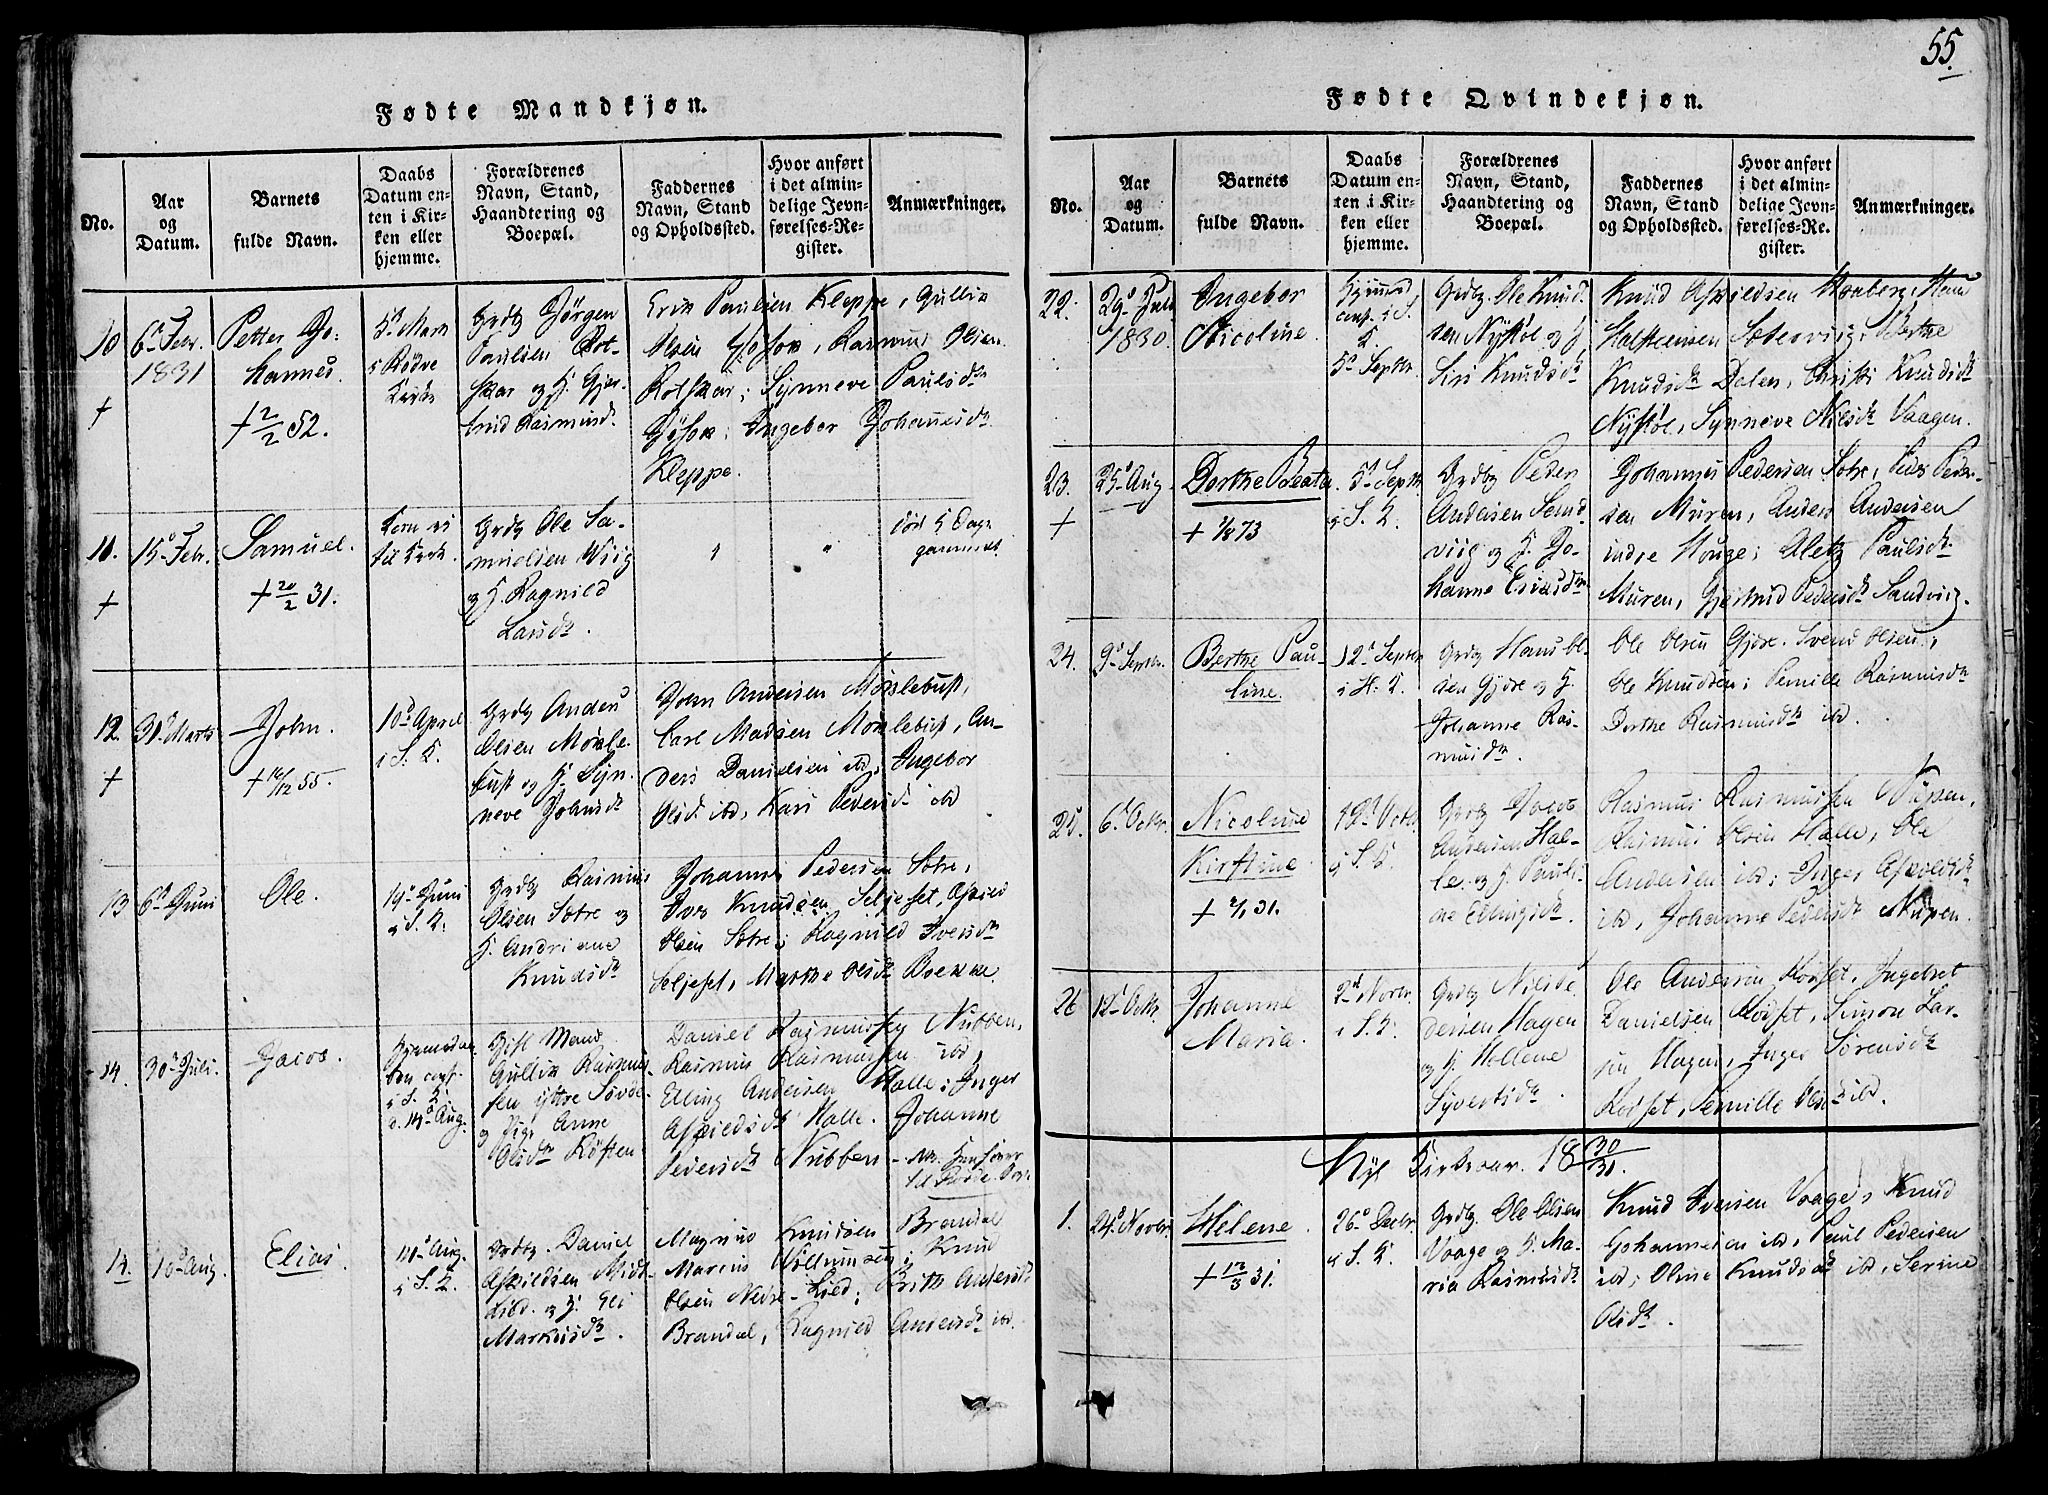 55.
Fødte Mandkjøn.
No.
Aar
og
Datum.
Barnets
fulde Navn.
Daabs
Datum en-
ten i Kir-
ken eller
hjemme.
Forældrenes
Navn, Stand,
Haandtering og
Boepæl.
Faddernes
Navn, Stand
og Opholdssted.
Hvor anført
i det almin-
delige Jevn-
førelses-Re-
gister.
Anmærkninger.
10
+
6d Febr.
1831
Petter Jo-
hannes.
+ 2/2 52.
5d Marts
i Rødve
Kirke
Grdbg Jørgen
Paulsen Rot-
skar og H. Gjer-
trud Rasmusdr
Erik Paulsen Kleppe, Gullik
Olsen, Rasmus Olsen
Rotskar; Synneve Paulsdr
Ingebor Johannesdr
Kleppe.
11.
+
15d Febr.
Samuel.
+ 20/2 31.
Kom ei
til Kirke.
Grdbg Ole Sa-
muelsen Wiig
og H. Ragnild
Larsdr.
"
"
død 5 Dage
gammel.
12.
+
31d Marts
John.
+ 16/12 55.
10d April
i S. K.
Grdbg Anders
Olsen Mörkle-
bust og H. Syn-
neve Johnsdr
John Andersen Mörklebust,
Carl Madsen Mörklebust, An-
ders Danielsen ibd; Ingebor
Olsdr ibd, Kari Pedersdr ibd
13
6d Juni
Ole.
19d Juni
i S. K.
Grdbg Rasmus
Olsen Sætre og
H. Andriane
Knudsdr
Johannes Pedersen Sætre,
Iver Knudsen Seljeset, Aslied
Olsen Sætre; Ragnild Iversdr
Seljeset, Marthe Olsdr Brekke.
14.
30d Juli.
Jacob.
Hjemmedøbt
conf.
i S. K.
d. 14d Aug.
Gift Mand
Gullik Rasmus-
sen yttre
og Pige Anne
Olsdr Røften
Daniel Rasmussen Nubben,
Rasmus Rasmussen ibd,
Elling Andersen Halle; Inger
Aslieds dr Halle. Johanne
Pedersdr Nubben
15.
10d Aug.
Elias.
14d Aug.
i S. K.
Grdbg. Daniel
Askildsen Midt-
Lied. og H. Eli
Markusdr.
Magnus Knudsen Brandal
Marius Willumsen, Knud
Olsen Nedre-Lied; Brith Andersdr
Brandal, Ragnild Andersdr ibd.
Fødte Qvindekjøn.
No.
Aar
og
Datum.
Barnets
fulde Navn.
Daabs
Datum en-
ten i Kir-
ken eller
hjemme.
Forældrenes
Navn, Stand,
Haandtering og
Boepæl.
Faddernes
Navn, Stand
og Opholdssted.
Hvor anført
i det almin-
delige Jevn-
førelses-Re-
gister.
Anmærkninger.
22.
29d Juli
1830.
Ingebor
Nicoline.
Hjemmed
conf. i S.
K.
5d Septbr.
Grdbg. Ole Knud-
sen Nystøl og H.
Siri Knudsdr
Knud Askildsen Honberg, Hans
Halsteensen Sætervig, Berthe
Knudsdr Dalen, Christi Knudsdr
Nystøl, Synneve Nilsdr Vaagen.
23.
+
25d Aug.
Dorthe Beate.
+ 1/8 73
5d Septbr.
i S. K.
Grdbg Peder
Andersen Sand-
viig og H. Jo-
hanne Esaiasdr
Johannes Pedersen Sætre, Peder Peder-
sen Muren, Anders Andersen
indre Houge; Alete Paulsdr
Muren, Gjertrud Pedersdr Sandvig.
24.
9d Septbr.
Berthe Pau-
line.
12d Septbr
i H. K.
Grdbg Hans Ol-
sen Gjære og H.
Johanne Ras-
musdr.
Ole Olsen Gjære. Svend Olsen,
Ole Knudsen; Pernille Rasmusdr
Dorthe Rasmusdr ibd.
25.
6d Octbr.
Nicoline
Kirstine
+ 2/1 31.
12d Octbr.
i S. K.
Grdbg Jacob
Andersen Hal-
le. og H. Pauli-
ne Ellingsdr.
Rasmus Rasmussen Nupen,
Rasmus Olsen Halle, Ole
Andersen ibd; Inger Asloldsdr
ibd, Johanne Pedersdr Nupen.
26
12d Octbr.
Johanne
Maria.
2d Novbr.
i S. K.
Grdbg Nils Pe-
dersen Hagen
og H. Hellene
Syvertsdr.
Ole Andersen Rødset, Ingebret
Danielsen Rødset, Simon Lar-
sen Hagen, Inger Sørensdr
Rødset, Pernille Olsdr ibd.
Nyt Kirkeaar. 18 30/31.
1.
24d Novbr.
Helene.
+ 12/3 31.
26d Decbr.
i S. K.
Grdbg. Ole Olsen
Vaage og H. Ma-
ria Rasmusdr
Knud Iversen Vaage, Knud
Johannesen ibd, Paul Pedersen
ibd; Oline Knudsdr ibd, Serine
Olsdr.